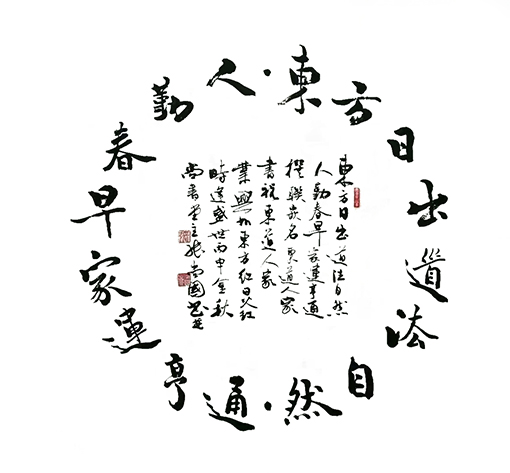 東方日出道法自然
人勤春早家運亨通
東方日出道法自然
人勤春早家運亨通
撰聯嵌名道人家
書祝東道人家
業興如東方紅日火紅
時逢盛世丙申金秋
尚書堂主張尚國書